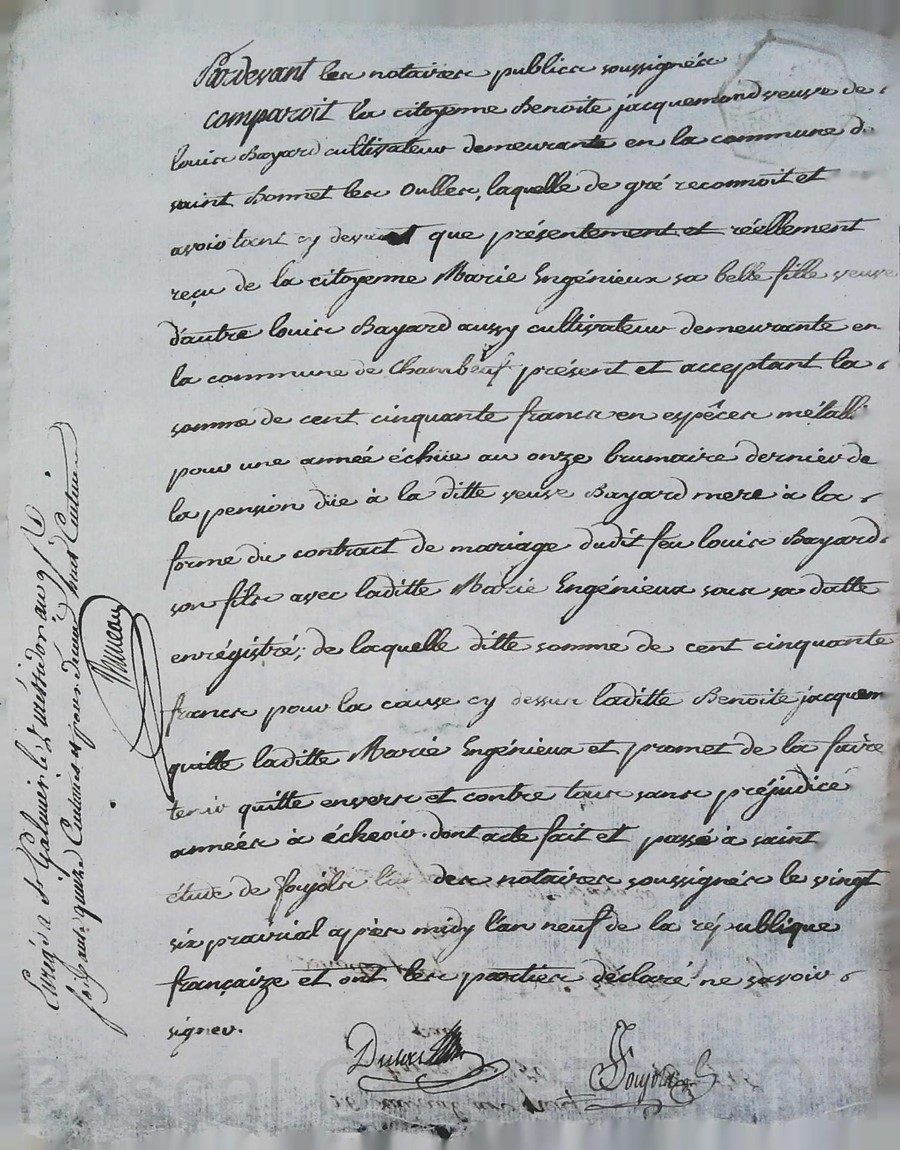 Pardevant les notaires publics soussignés
comparoit la citoyenne Benoite jacquemond veuve de
louis Bayard cultivateur demeurante en la commune de
saint Bonnet les Oulles, laquelle de gré reconnoit et
avoir tant cy devant que présentement et réellement
reçu de la citoyenne Marie Engénieux sa belle fille veuve
d'autre louis Bayard aussy cultivateur demeurante en
la commune de Chambœuf présent et acceptant la
somme de cent cinquante francs en espêces métalli
pour une année échüe au onze brumaire dernier de
la pension düe à la ditte veuve Bayard mere à la
forme du contract de mariage dudit feu louis Bayard
son fils avec laditte Marie Engénieux sous sa datte
enrégistré; de laquelle ditte somme de cent cinquante
francs pour la cause cy dessus laditte Benoite jacquem
quitte laditte Marie Engénieux et promet de la faire
tenir quitte envers et contre tous sans préjudice
années à écheoir dont acte fait et passé à saint
étude de foujols des notaires soussignés le vingt
six prairial après midy l'an neuf de la république
françaize et ont les parties déclaré ne savoir
signer.
Foujols
Enrg à St Galmier le messidor an 9
quinze Centimes